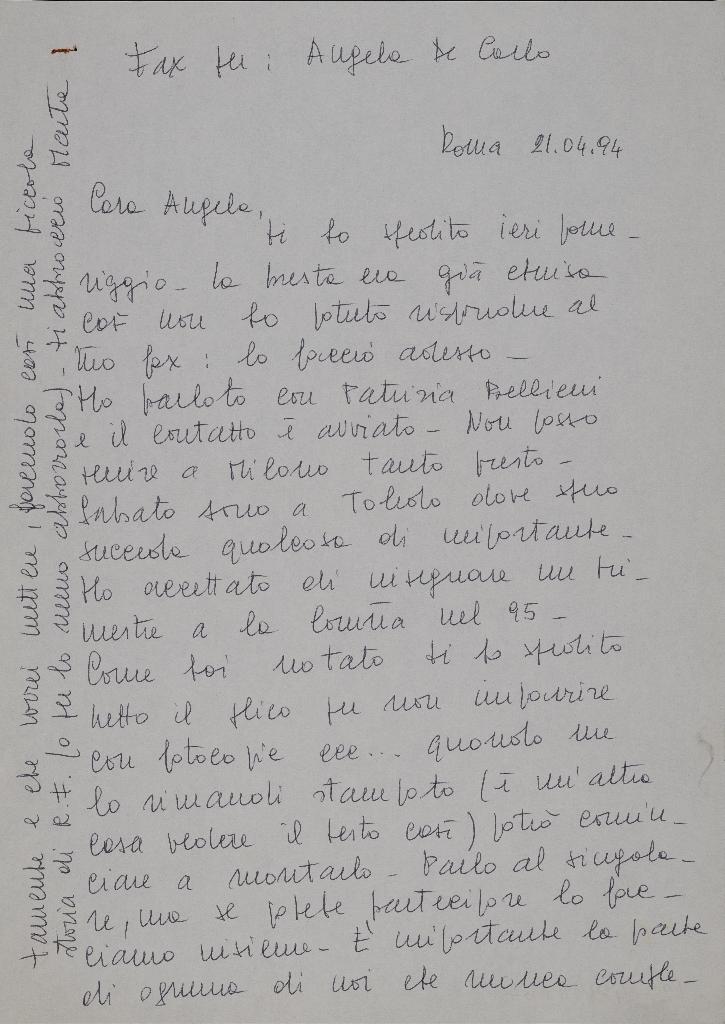 Fax per: Angela De Carlo
Roma 21.04.94
Cara Angela,
ti ho spedito ieri pome-
riggio - la busta era già chiusa
così non ho potuto rispondere al
tuo fax: lo faccio adesso -
Ho parlato con Patrizia Bellieni
e il contatto è avviato - Non posso
venire a Milano tanto presto -
Sabato sono a Toledo dove spero
succeda qualcosa di importante -
Ho accettato di insegnare un tri-
mestre a la Coruña nel 95 -
Come hai notato ti ho spedito
tutto il plico per non impazzire
con fotocopie ecc... quando me
lo rimandi stampato (è un'altra
cosa vedere il testo così) potrò comin-
ciare a montarlo - Parlo al singola-
re, ma se potete partecipare lo fac-
ciamo insieme - È importante la parte
di ognuna di noi che manca comple-
tamente e che vorrei mettere, facendo così una piccola
storia di R.F. (o per lo meno abbozzarla) - ti abbraccio